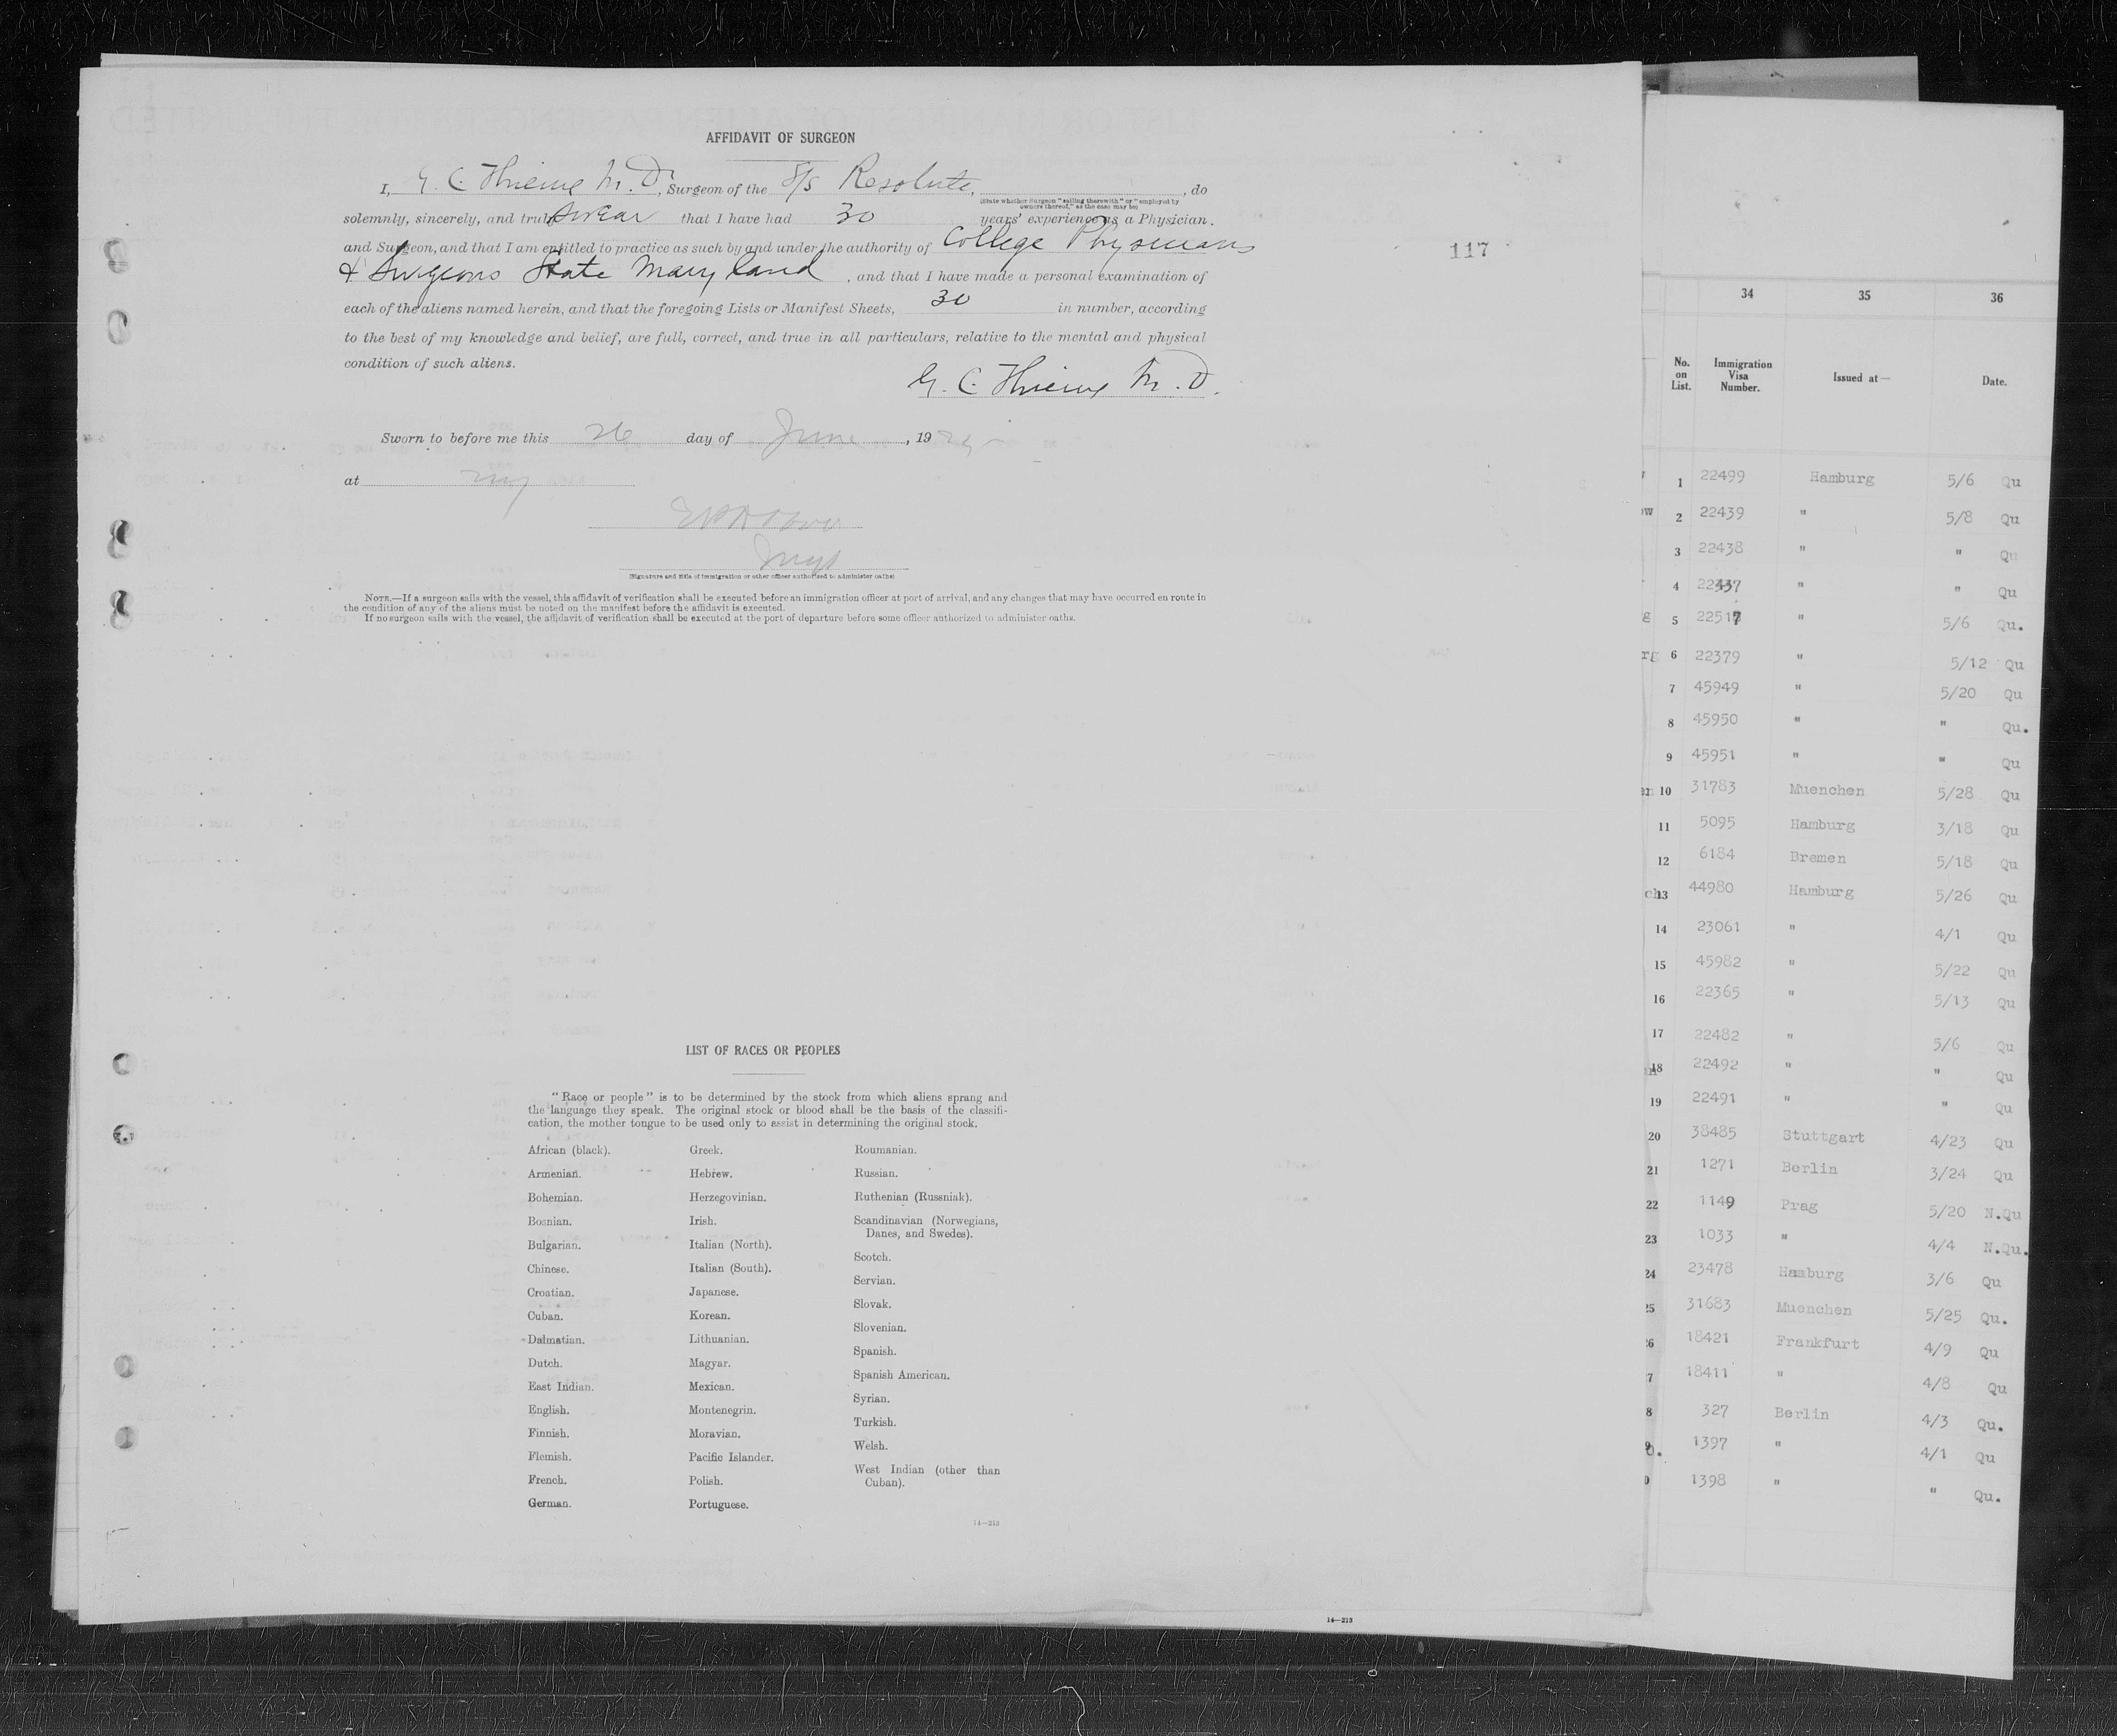 AFFIDAVIT OF SURGEON
I, G. C. M.D., Surgeon of the S/s Resolute, , do
(State whether Surgeon "sailing therewith" or "employed by
owners thereof," as the case may be)
solemnly, sincerely, and truly swear that I have had 30 years' experience as a Physician
and Surgeon, and that I am entitled to practice as such by and under the authority of College Physicians
& Surgeons State Maryland, and that I have made a personal examination of
117
each of the aliens named herein, and that the foregoing Lists or Manifest Sheets, 30 in number, according
to the best of my knowledge and belief, are full, correct, and true in all particulars, relative to the mental and physical
condition of such aliens.
G. C. M.D.
Sworn to before me this 26 day of June, 19
at ny
(Signature and title of immigration or other officer authorized to administer oaths)
NOTE.—If a surgeon sails with the vessel, this affidavit of verification shall be executed before an immigration officer at port of arrival, and any changes that may have occurred en route in
the condition of any of the aliens must be noted on the manifest before the affidavit is executed.
If no surgeon sails with the vessel, the affidavit of verification shall be executed at the port of departure before some officer authorized to administer oaths.
LIST OF RACES OR PEOPLES
"Race or people" is to be determined by the stock from which aliens sprang and
the language they speak. The original stock or blood shall be the basis of the classifi-
cation, the mother tongue to be used only to assist in determining the original stock.
African (black).
Armenian.
Bohemian.
Bosnian.
Bulgarian.
Chinese.
Croatian.
Cuban.
Dalmatian.
Dutch.
East Indian.
English.
Finnish.
Flemish.
French.
German.
Greek.
Hebrew.
Herzegovinian.
Irish.
Italian (North).
Italian (South).
Japanese.
Korean.
Lithuanian.
Magyar.
Mexican.
Montenegrin.
Moravian.
Pacific Islander.
Polish.
Portuguese.
Roumanian.
Russian.
Ruthenian (Russniak).
Scandinavian (Norwegians,
Danes, and Swedes).
Scotch.
Servian.
Slovak.
Slovenian.
Spanish.
Spanish American.
Syrian.
Turkish.
Welsh.
West Indian (other than
Cuban).
14—213
14—213
34 35 36
No. on List. Immigration Visa Number. Issued at— Date.
1 22499 Hamburg 5/6 Qu
ow 2 22439 " 5/8 Qu
3 22438 " " Qu
4 22437 " " Qu
g 5 22517 " 5/6 Qu.
rg 6 22379 " 5/12 Qu
7 45949 " 5/20 Qu
8 45950 " " Qu.
9 45951 " " Qu
en 10 31783 Muenchen 5/28 Qu
11 5095 Hamburg 3/18 Qu
12 6184 Bremen 5/18 Qu
ch 13 44980 Hamburg 5/26 Qu
14 23061 " 4/1 Qu
15 45982 " 5/22 Qu
16 22365 " 5/13 Qu
17 22482 " 5/6 Qu
18 22492 " " Qu
19 22491 " " Qu
20 38485 Stuttgart 4/23 Qu
21 1271 Berlin 3/24 Qu
22 1149 Prag 5/20 N.Qu
23 1033 " 4/4 N.Qu.
24 23478 Hamburg 3/6 Qu
25 31683 Muenchen 5/25 Qu.
26 18421 Frankfurt 4/9 Qu
7 18411 " 4/8 Qu
8 327 Berlin 4/3 Qu.
9 1397 " 4/1 Qu
0 1398 " " Qu.